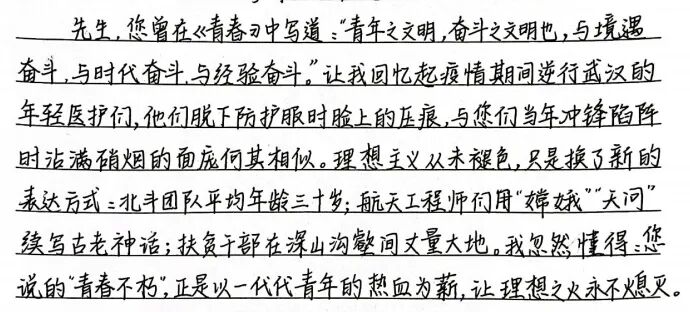 先生,您曾在《青春》中写道:“青年之文明,奋斗之文明也,与境遇
奋斗,与时代奋斗,与经验奋斗。”让我回忆起疫情期间逆行武汉的
年轻医护们,他们脱下防护服时脸上的压痕,与您们当年冲锋陷阵
时沾满硝烟的面庞何其相似。理想主义从未褪色,只是换了新的
表达方式:北斗团队平均年龄三十岁;航天工程师们用“嫦娥”“天问”
续写古老神话;扶贫干部在深山沟壑间丈量大地。我忽然懂得:您
说的“青春不朽”,正是以一代代青年的热血为薪,让理想之火永不熄灭。